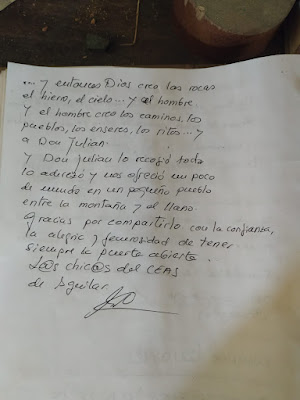 ... y entonces Dios creo las rocas
el hierro, el cielo ... y al hombre.
Y el hombre creo los caminos, los
pueblos, los enseres, los ritos ... y
a Don Julian.
Y Don Julian lo recogió todo
lo aderezó y nos ofreció un poco
de mundo en un pequeño pueblo
entre la montaña y el llano.
Gracias por compartirlo con la confianza,
la alegria y generosidad de tener
siempre la puerta abierta.
L@s chic@s del CEAS
de Aguilar.